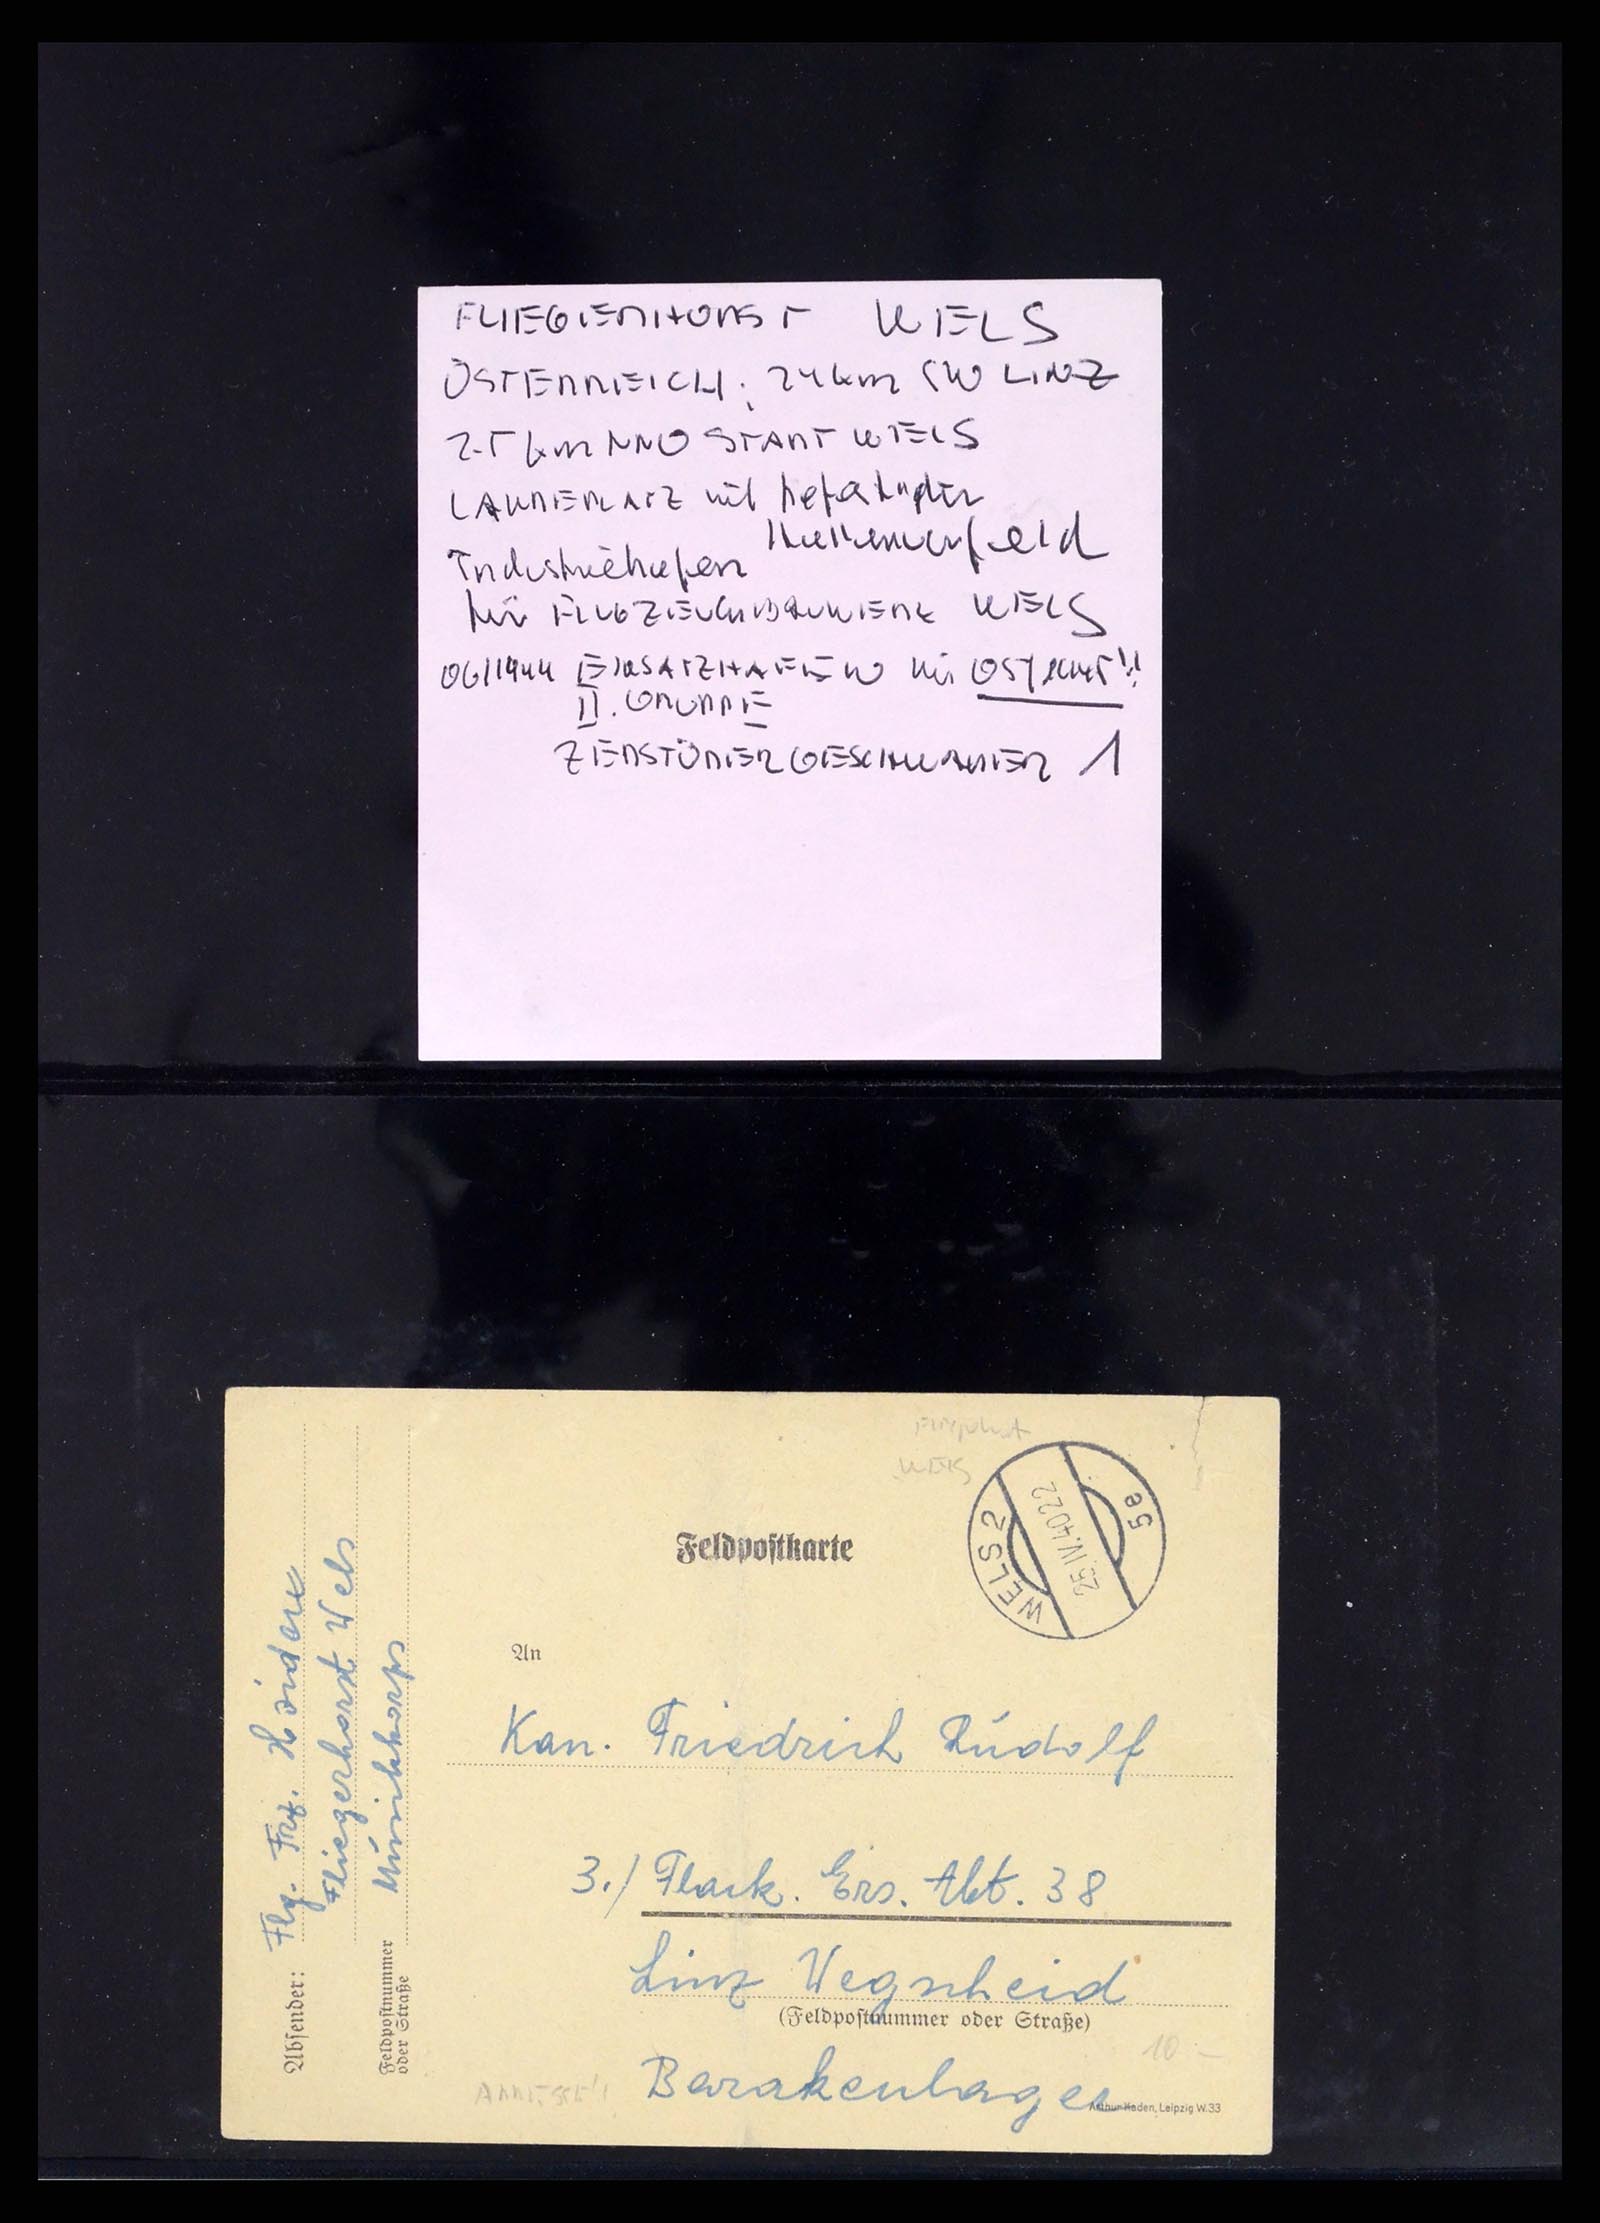 FLIEGERHORST WELS
ÖSTERREICH; 24 km SW LINZ
2.5 km NNO STADT WELS
LANDEPLATZ mit befestigter
Industriehafen
für FLUGZEUGBAUWERK WELS
06/1944 EINSATZHAFEN für
II. GRUPPE
ZERSTÖRERGESCHWADER 1
Fliegerhorst
WELS
WELS 2
25.IV.40 22
5e
Feldpostkarte
An
Kan. Friedrich Rúdolf
3./ Flack. Ers. Abt. 38
Linz Wegscheid
(Feldpostnummer oder Straße)
Barakenlager
10.-
ADRESSE!
Arthur Kaden, Leipzig W.33
Absender: Flg. Frz.
Fliegerhorst Wels
Músikkorps
Feldpostnummer
oder Straße